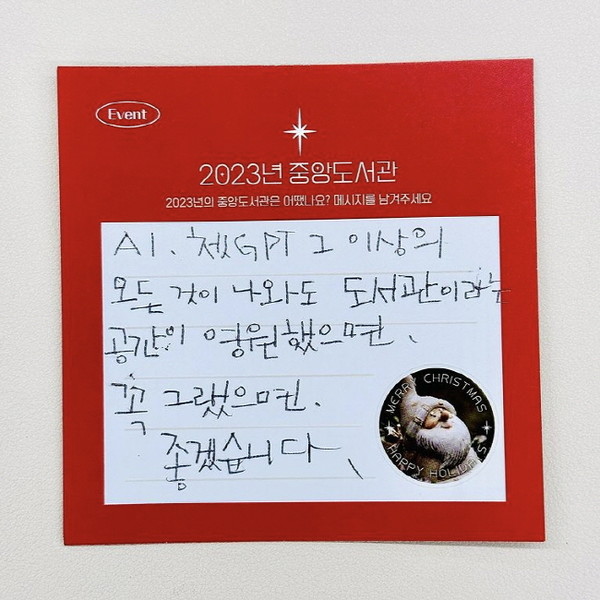 Event
2023년 중앙도서관
2023년의 중앙도서관은 어땠나요? 메시지를 남겨주세요
AI. 쳇GPT 그 이상의
모든 것이 나와도 도서관이라는
공간이 영원했으면.
꼭 그랬으면.
좋겠습니다.
MERRY CHRISTMAS
HAPPY HOLIDAYS